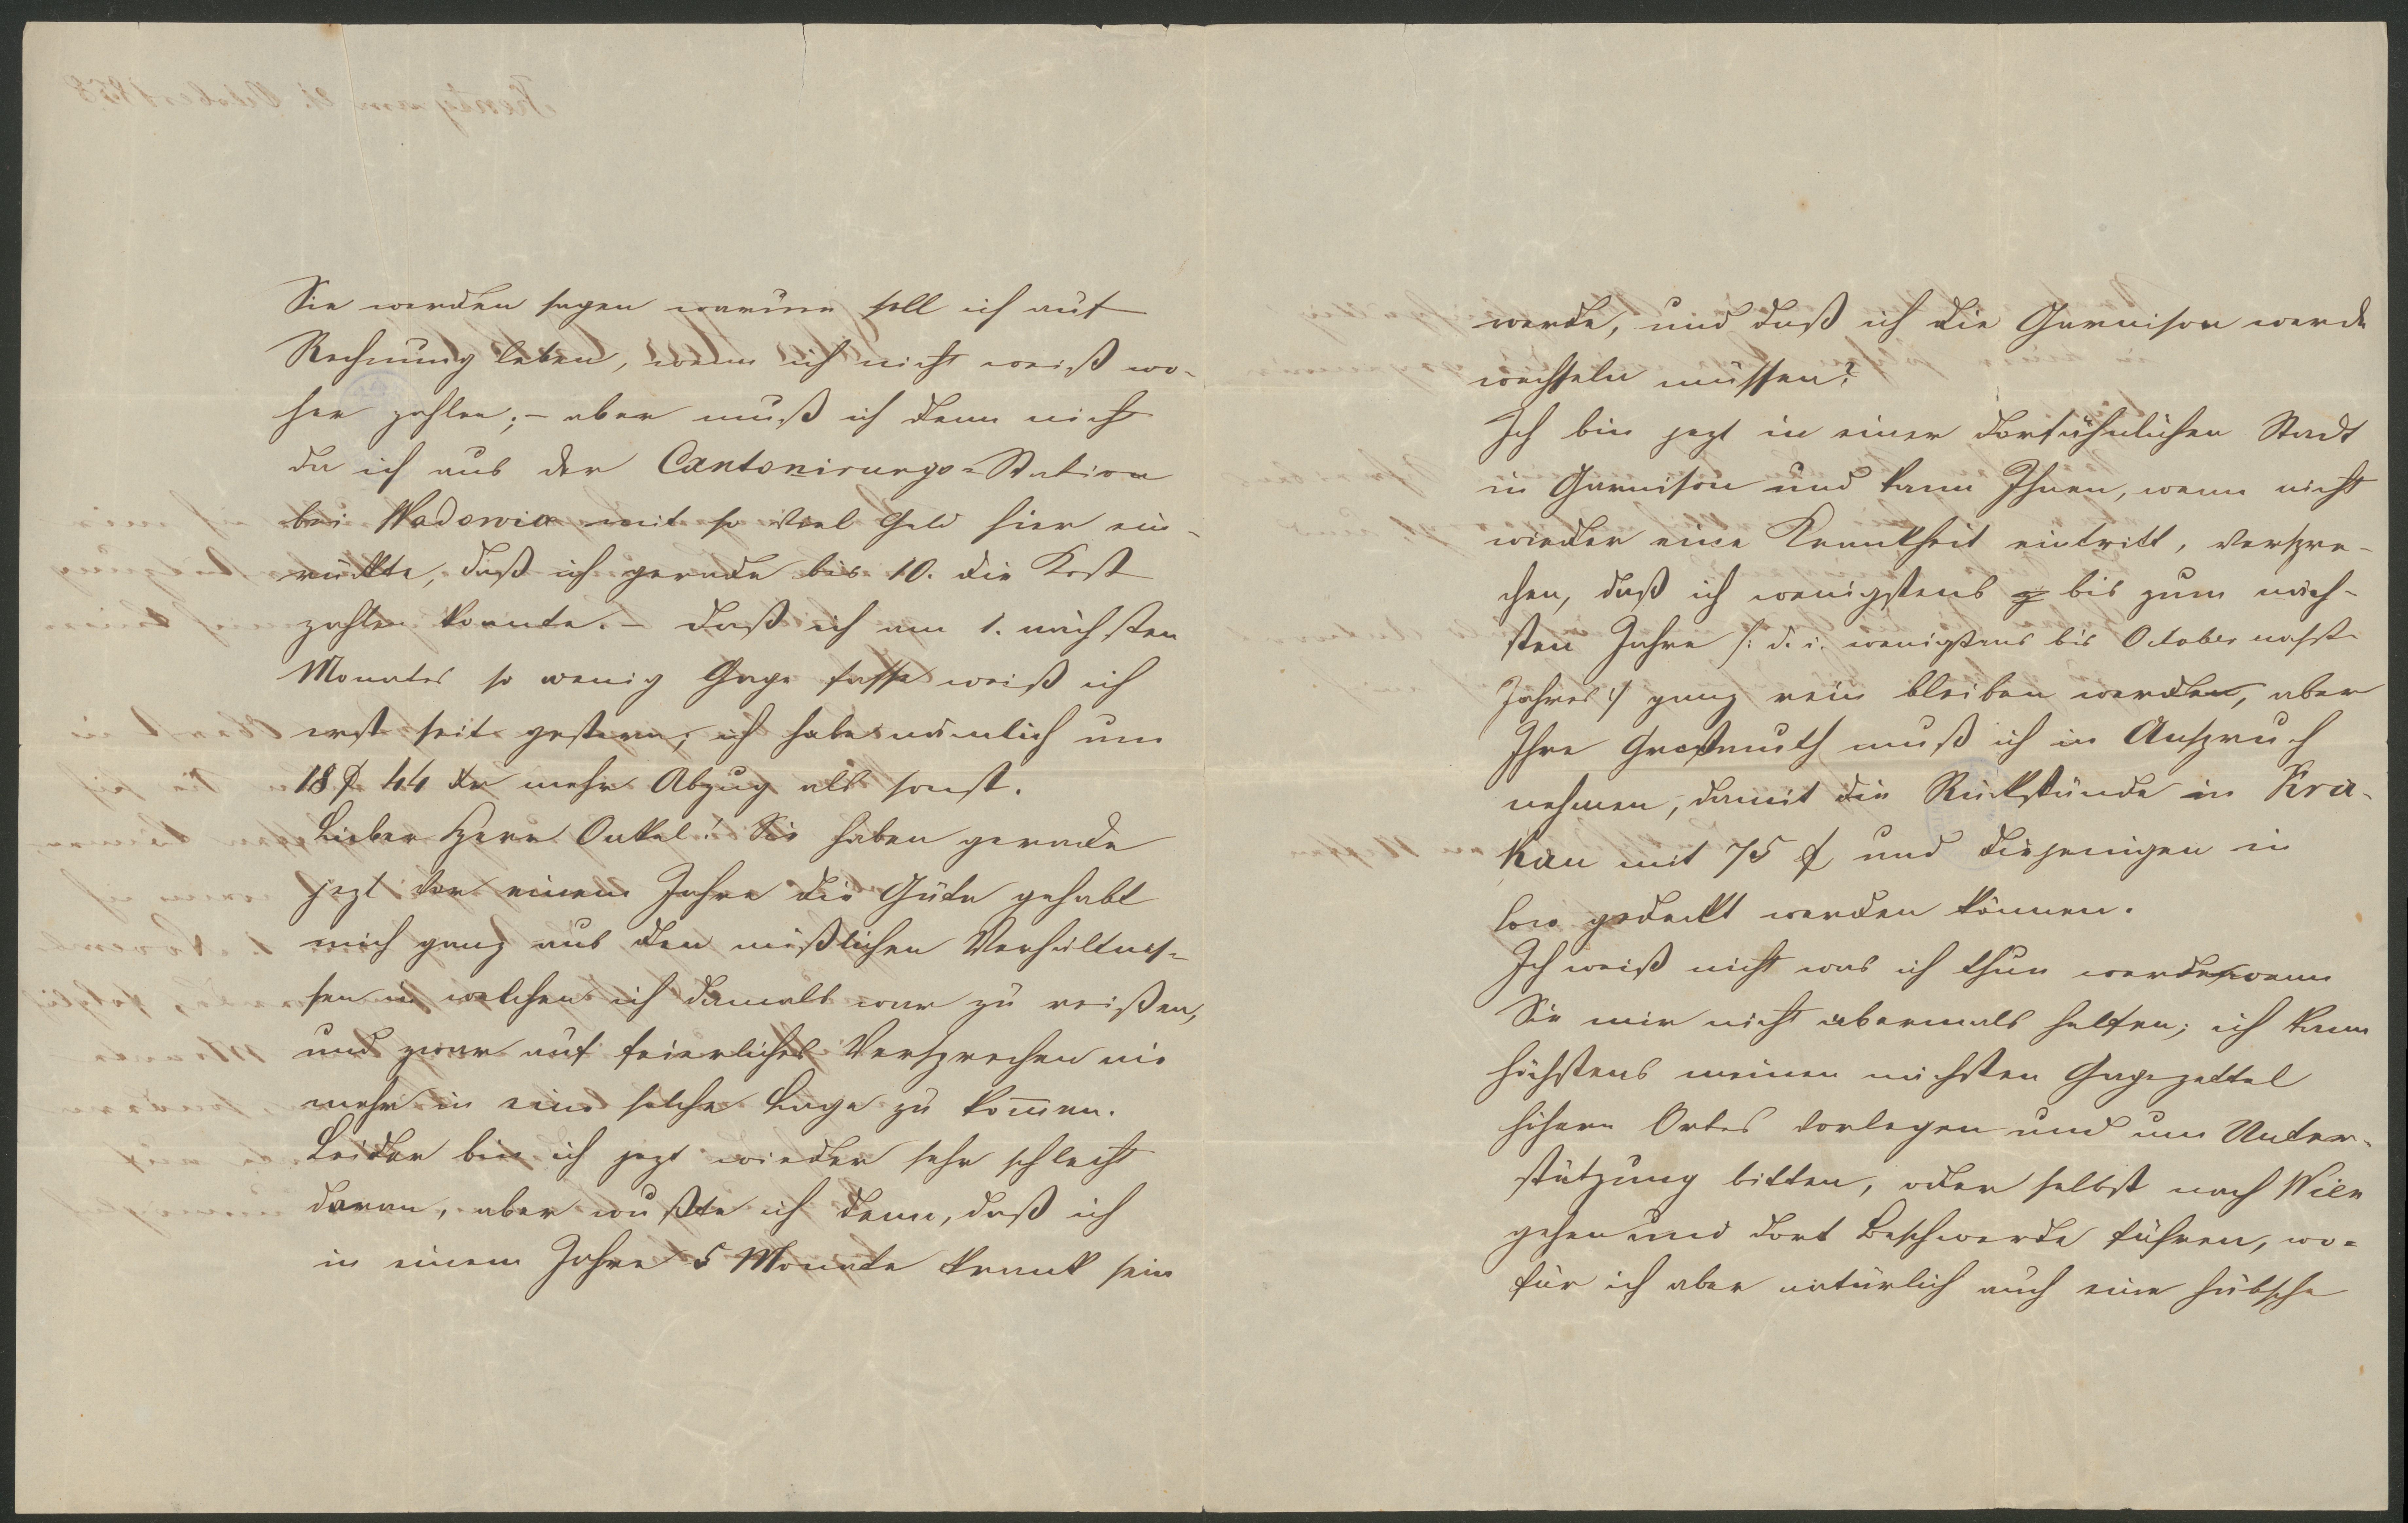 Sie werden sagen warum soll ich auf
Rechnung leben, wenn ich nicht weiß wo-
her zahlen; – aber muß ich denn nicht
da ich aus der Cantonirungs-Station
bei Wadowice mit so viel Geld hier ein-
rückte, daß ich gerade bis 10. die Kost
zahlen konnte. – Daß ich am 1. nächsten
Monates so wenig Gage fasse weiß ich
erst seit gestern, ich habe nämlich um
18 f 44 xr mehr Abzug als sonst.
Lieber Herr Onkel! Sie haben gerade
jezt vor einem Jahre die Güte gehabt
mich ganz aus den mißlichen Verhältnis-
sen in welchen ich damals war zu reißen,
und zwar auf feierliches Versprechen nie
mehr in eine solche Lage zu kommen.
Leider bin ich jezt wieder sehr schlecht
daran, aber wußte ich denn, daß ich
in einem Jahre 5 Monate krank sein
werde, und daß ich die Garnison werde
wechseln müssen?
Ich bin jezt in einer dorfähnlichen Stadt
in Garnison und kann Ihnen, wenn nicht
wieder eine Krankheit eintritt, verspre-
chen, daß ich wenigstens bis zum näch-
sten Jahre /: d. i. wenigstens bis October nächst
Jahres :/ ganz rein bleiben werde, aber
Ihre Großmuth muß ich in Anspruch
nehmen, damit die Rückstände in Kra-
kau mit 75 f und diejenigen in
loco gedeckt werden können.
Ich weiß nicht was ich thun werde wenn
Sie mir nicht abermals helfen; ich kann
höchstens meinen nächsten Gagezettel
höhern Ortes vorlegen und um Unter-
stützung bitten, oder selbst nach Wien
gehen und dort Beschwerde führen, wo-
für ich aber natürlich auch eine hübsche